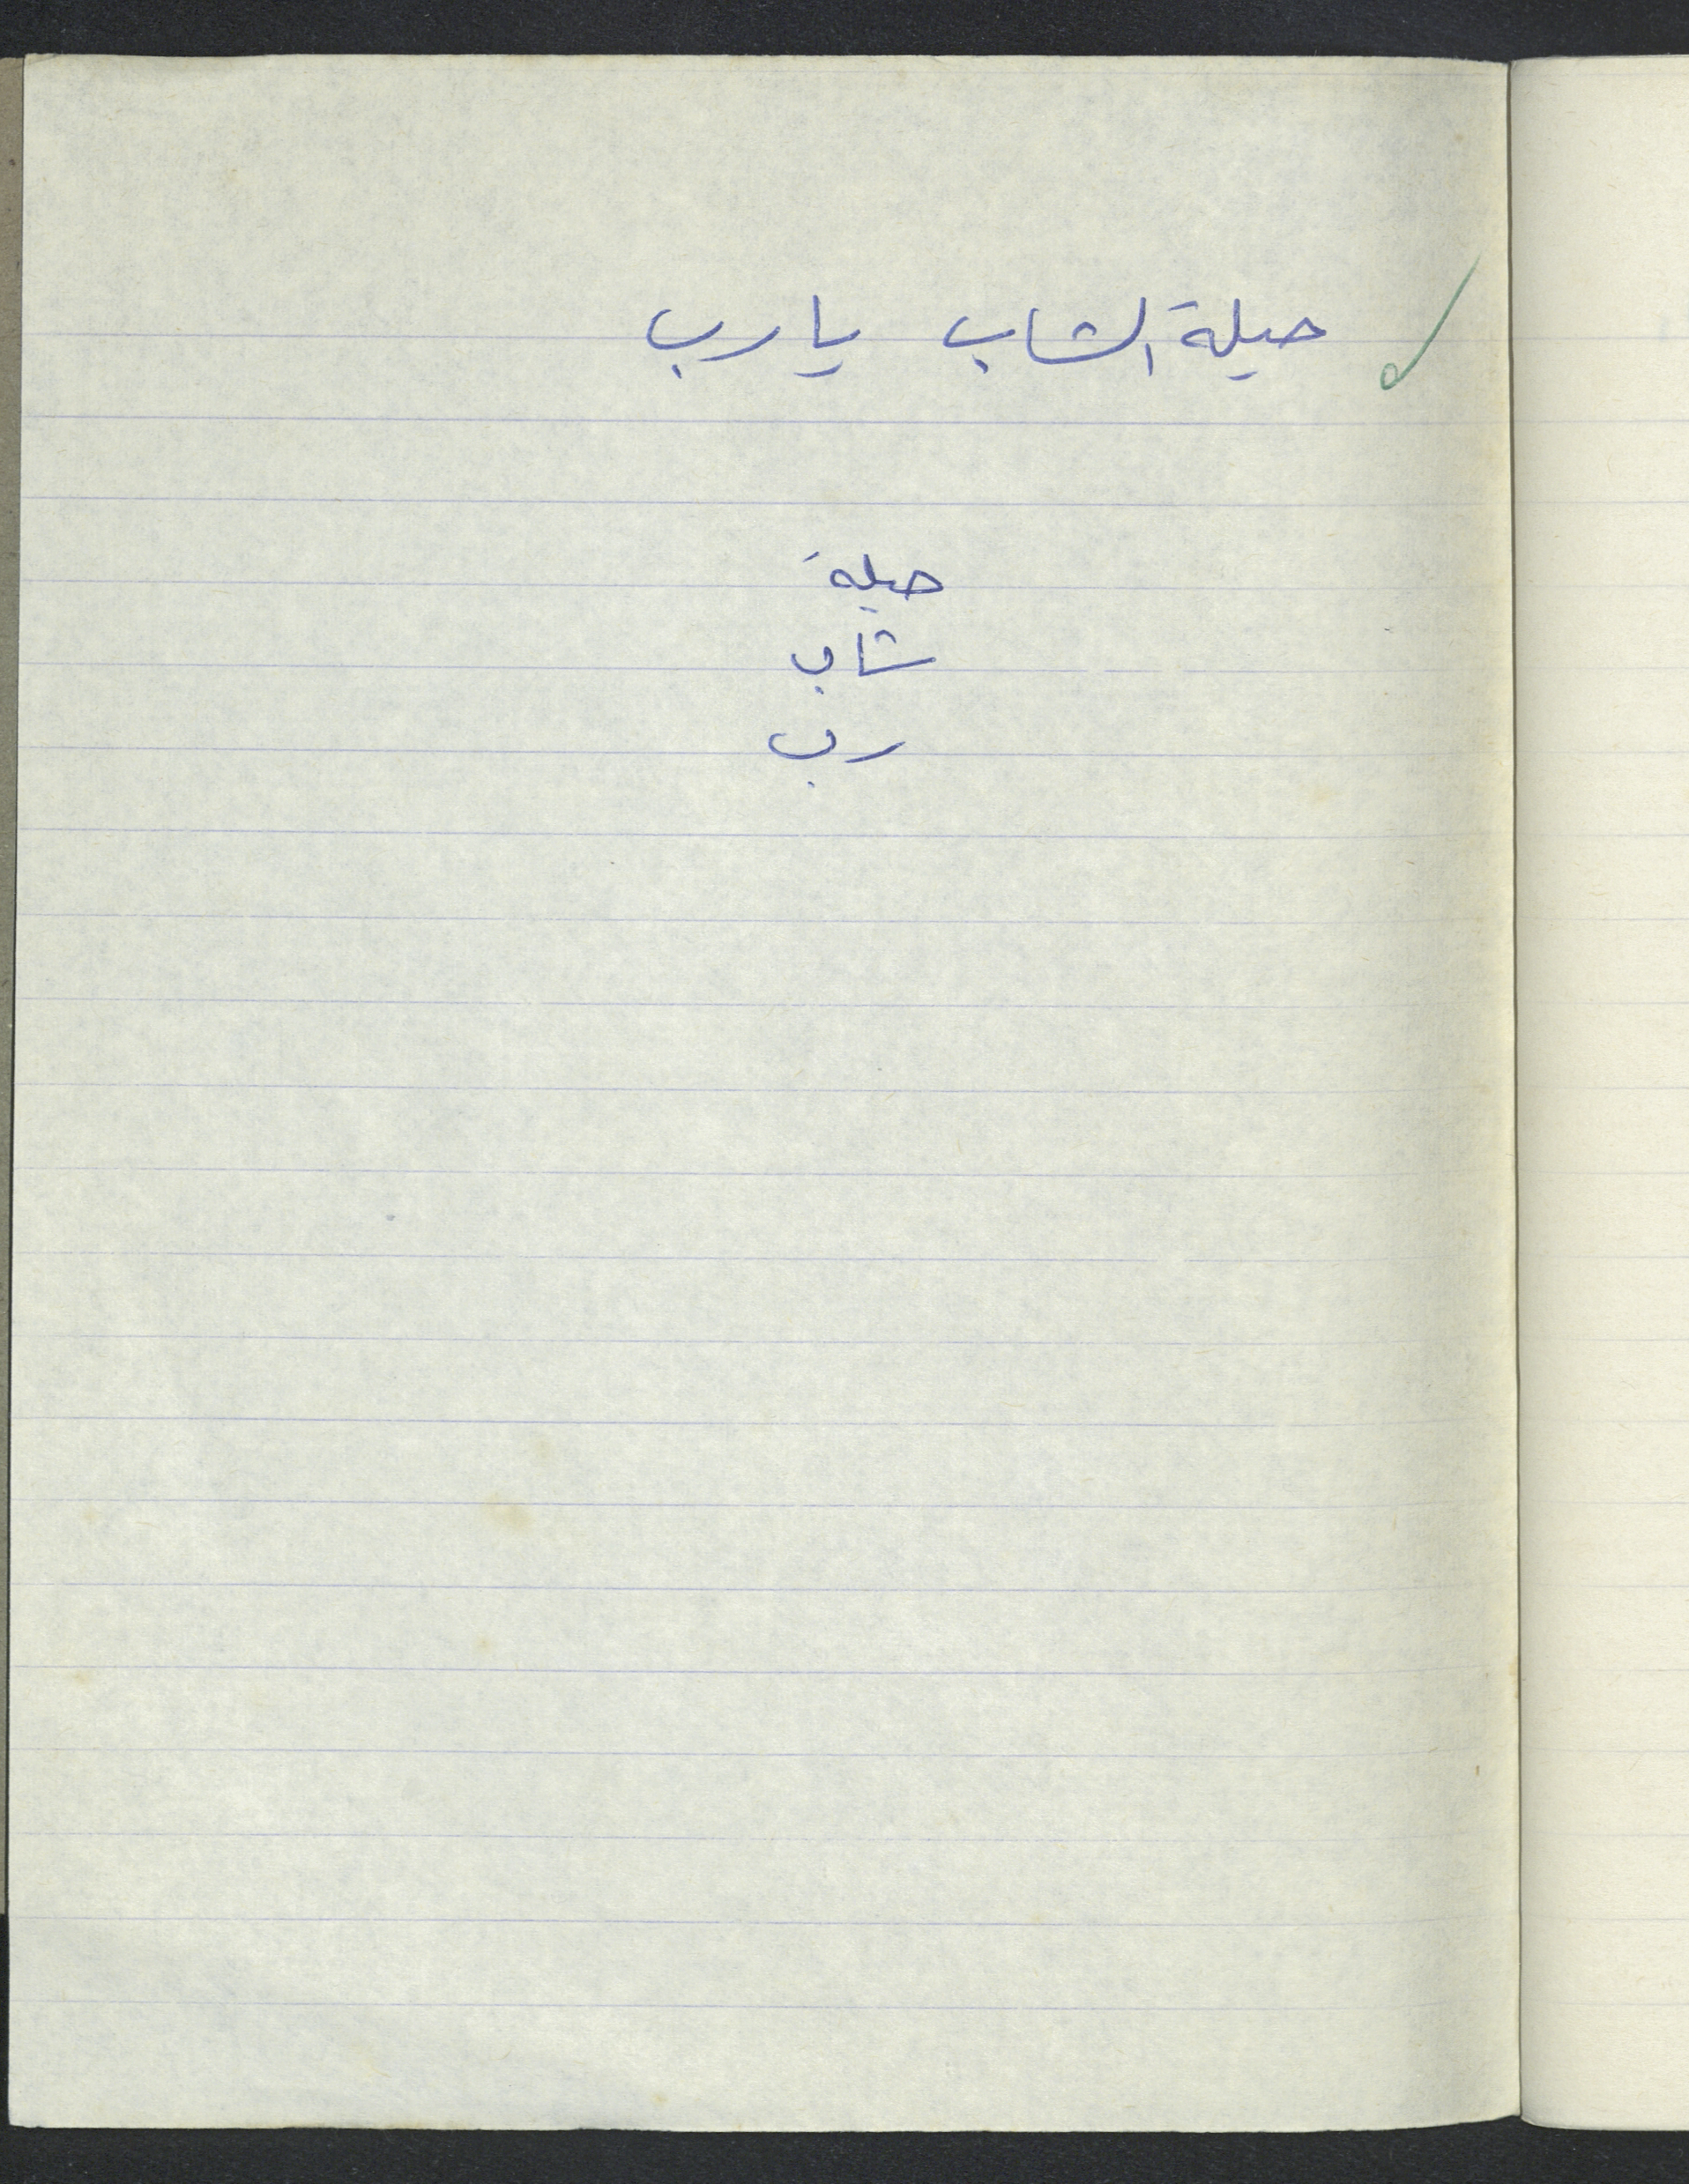 حيلة الشاب يا رب
حيلة
شاب
رب